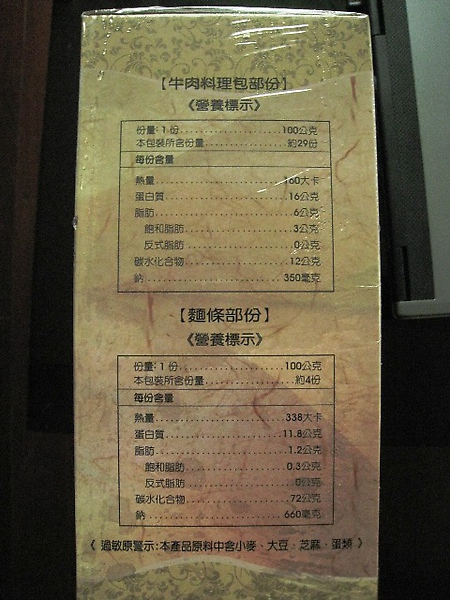 【牛肉料理包部份】
《營養標示》
份量:1 份..........................100公克
本包裝所含份量....................約29份
每份含量
熱量..............................160大卡
蛋白質............................16公克
脂肪..............................6公克
飽和脂肪..........................3公克
反式脂肪..........................0公克
碳水化合物........................12公克
鈉................................350毫克
【麵條部份】
《營養標示》
份量:1 份..........................100公克
本包裝所含份量....................約4份
每份含量
熱量..............................338大卡
蛋白質............................11.8公克
脂肪..............................1.2公克
飽和脂肪..........................0.3公克
反式脂肪..........................0公克
碳水化合物........................72公克
鈉................................660毫克
《 過敏原警示:本產品原料中含小麥、大豆、芝麻、蛋類 》